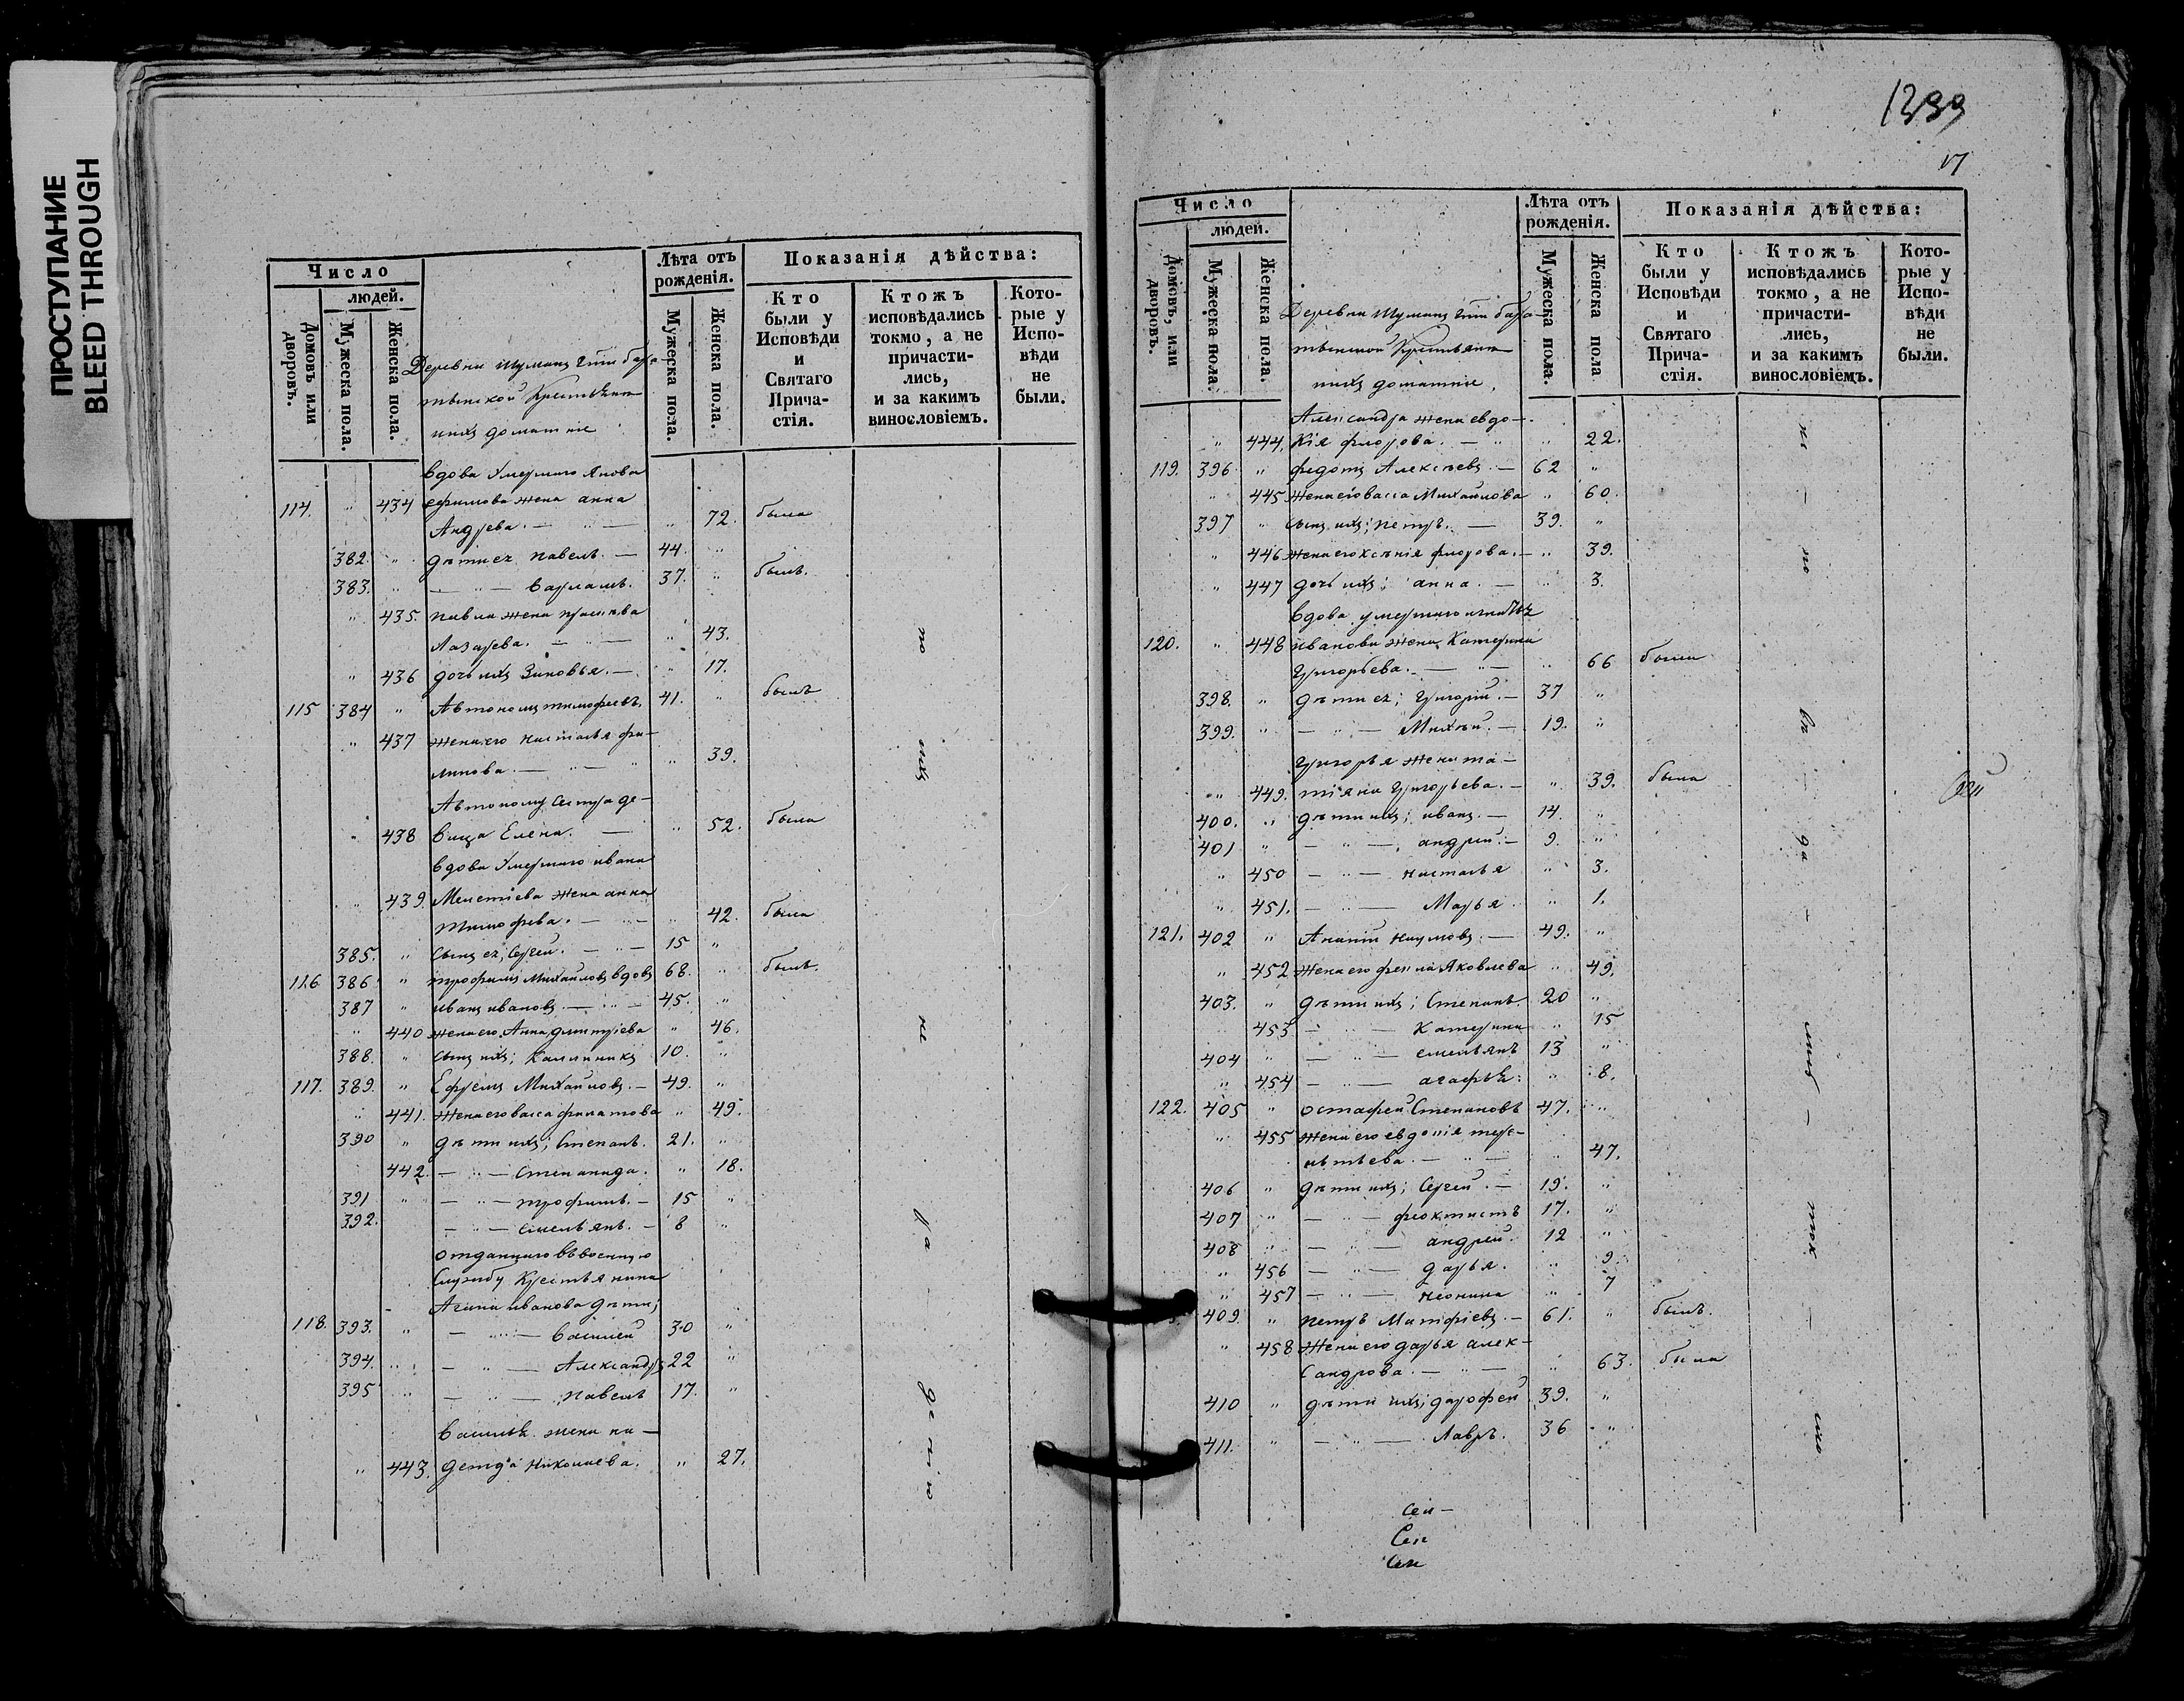 ПРОСТУПАНИЕ
BLEED THROUGH
Число
людей.
Домовъ или дворовъ.
Мужеска пола.
Женска пола.
Деревни
домашнiе
Лѣта отъ рожденiя.
Мужеска пола.
Женска пола.
Показанiя дѣйства:
Кто были у Исповѣди и Святаго Прича-стiя.
Ктожъ исповѣдались токмо, а не причасти-лись, и за какимъ винословiемъ.
Кото-рые у Испо-вѣди не были.
вдова Умершаго
114. " 434 ефимова жена анна
Андрева. — " — " 72. была
382. " дѣти ея Павелъ. — 44. "
383. " — " — Варламъ. 37. " былъ.
" 435. павла жена
Лазарева. — " — " 43.
" 436 дочь ихъ Зиновья. — " 17.
115 384 " Автономъ тимофеевъ. 41. " былъ
" 437 жена его Наталья фи—
липова. — " — " 39.
Автонома сестра де—
" 438 вица Елена. — " 52. была
вдова Умершаго ивана
" 439. жена анна
тимофева. — " — " 42. была
385. " сынъ ея, Сергей. — " — 15 "
116 386 " трофимъ Михаиловъ вдовъ 68. " былъ.
387 " иванъ ивановъ — " — 45. "
" 440 жена его, Анна дмитрiева " 46.
388. " сынъ ихъ; Калиникъ 10. "
117. 389. " Ефремъ Михаиловъ. — 49. "
" 441. жена его васса филатова " 49.
390 " дѣти ихъ; Степанъ. 21. "
442. — " — Степанида. " 18.
391 " — " — трофимъ. — 15 "
392. — " — емельянъ. — 8 "
отданнаго въ военную
Службу Крестьянина
ивanова дѣти;
118. 393. " — " — Василей 30 "
394. " — " — Александръ 22 "
395 " — " — Павелъ 17. "
Василья жена на—
" 443. дежда Николаева. " 27.
по
нихъ
не
ра
денiю
1399
17
Число
людей.
Домовъ, или дворовъ.
Мужеска пола.
Женска пола.
Деревни
домашнiе
Лѣта отъ рожденiя.
Мужеска пола.
Женска пола
Показанiя дѣйства:
Кто были у Исповѣди и Святаго Прича-стiя.
Ктожъ исповѣдались токмо, а не причасти-лись, и за какимъ винословiемъ.
Кото-рые у Испо-вѣди не были.
Александра жена евдо—
" 444. кiя флорова. — " " 22.
119. 396 " федотъ Алексѣевъ. — 62 "
" 445 жена его васса Михаилова " 60.
397 " сынъ ихъ; Петръ. — 39. "
" 446 жена его ксѣнiя флорова. — " 39.
" 447 дочь ихъ: анна. — " 3.
вдова умершаго игнатья
120. " 448 иванова жена Катерина
Григорьева. — " — " 66 была
398. " дѣти ея; Григорiй. — 37 "
399. " — " — Михѣй. — 19. "
Григорья жена та—
" 449. тiяна Григорьева. — " 39. была
400. " дѣти ихъ; иванъ. — 14. "
401 " — " — андрей. — 9. "
" 450 — " — наталья " 3.
" 451. — " — Марья. " 1.
121. 402 " Ананiй наумовъ. — 49. "
" 452 жена его фекла Яковлева " 49.
403. " дѣти ихъ; Степанъ. 20 "
453 — " — Катерина " 15
404 " — " — емельянъ 13 "
" 454 — " — агафья: " 8.
122. 405 " остафей Степановъ 47. "
" 455 жена его евдокiя тере—
нтьева. — " — " 47.
406 " дѣти ихъ; Сергей. — 19. "
407 " — " — феоктистъ 17. "
408 " — " — андрей. 12 "
" 456 — " — дарья. " 9.
" 457 — " — неонила " 7
409 " петръ Матфiевъ. — 61. " былъ.
" 458 жена его дарья алек—
сандрова. — " — " 63. была
410 " дѣти ихъ; дарофей 39. "
411. " — " — Лавръ. 36 "
Сен—
Сен
Сен